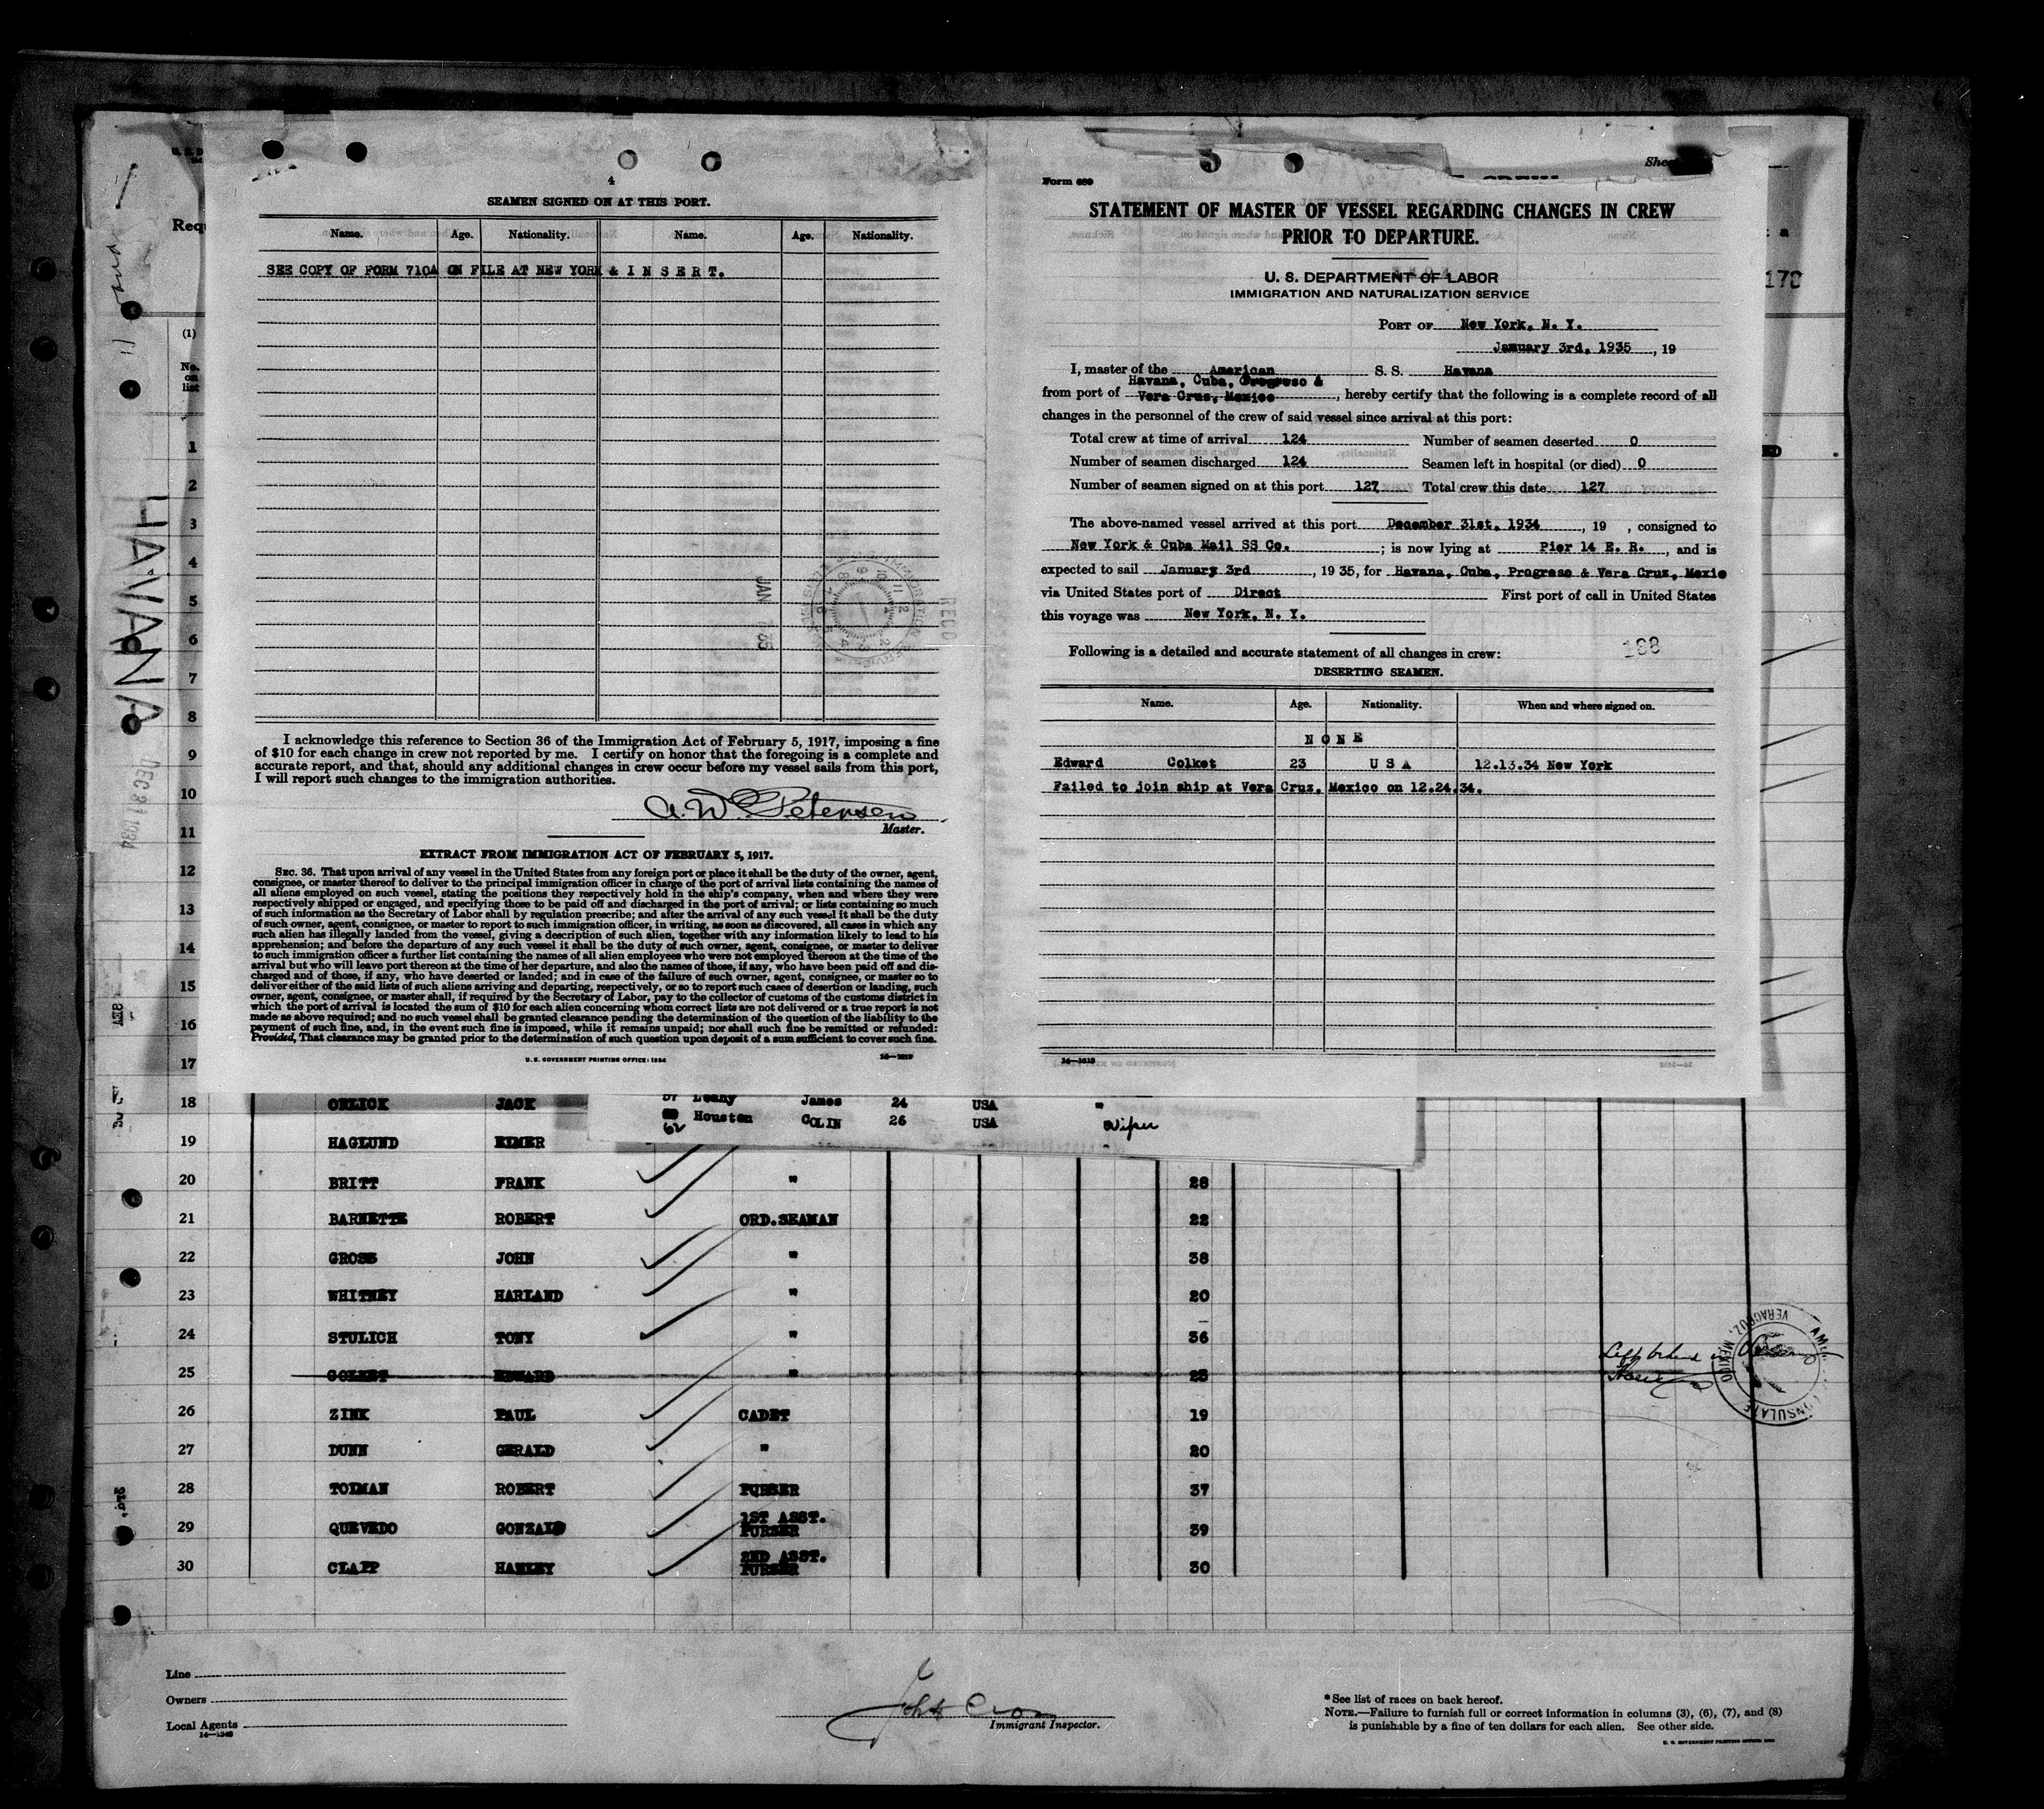 4
SEAMEN SIGNED ON AT THIS PORT.
Name. Age. Nationality. Name. Age. Nationality.
SEE COPY OF FORM 710A ON FILE AT NEW YORK & I N S E R T.
JAN 35
RECD
I acknowledge this reference to Section 36 of the Immigration Act of February 5, 1917, imposing a fine
of $10 for each change in crew not reported by me. I certify on honor that the foregoing is a complete and
accurate report, and that, should any additional changes in crew occur before my vessel sails from this port,
I will report such changes to the immigration authorities.
A. W. Petersen
Master.
EXTRACT FROM IMMIGRATION ACT OF FEBRUARY 5, 1917.
SEC. 36. That upon arrival of any vessel in the United States from any foreign port or place it shall be the duty of the owner, agent,
consignee, or master thereof to deliver to the principal immigration officer in charge of the port of arrival lists containing the names of
all aliens employed on such vessel, stating the positions they respectively hold in the ship's company, when and where they were
respectively shipped or engaged, and specifying those to be paid off and discharged in the port of arrival; or lists containing so much
of such information as the Secretary of Labor shall by regulation prescribe; and after the arrival of any such vessel it shall be the duty
of such owner, agent, consignee, or master to report to such immigration officer, in writing, as soon as discovered, all cases in which any
such alien has illegally landed from the vessel, giving a description of such alien, together with any information likely to lead to his
apprehension; and before the departure of any such vessel it shall be the duty of such owner, agent, consignee, or master to deliver
to such immigration officer a further list containing the names of all alien employees who were not employed thereon at the time of the
arrival but who will leave port thereon at the time of her departure, and also the names of those, if any, who have been paid off and dis-
charged and of those, if any, who have deserted or landed; and in case of the failure of such owner, agent, consignee, or master so to
deliver either of the said lists of such aliens arriving and departing, respectively, or so to report such cases of desertion or landing, such
owner, agent, consignee, or master shall, if required by the Secretary of Labor, pay to the collector of customs of the customs district in
which the port of arrival is located the sum of $10 for each alien concerning whom correct lists are not delivered or a true report is not
made as above required; and no such vessel shall be granted clearance pending the determination of the question of the liability to the
payment of such fine, and, in the event such fine is imposed, while it remains unpaid; nor shall such fine be remitted or refunded:
Provided, That clearance may be granted prior to the determination of such question upon deposit of a sum sufficient to cover such fine.
U. S. GOVERNMENT PRINTING OFFICE: 1934
Form 689
STATEMENT OF MASTER OF VESSEL REGARDING CHANGES IN CREW
PRIOR TO DEPARTURE.
U. S. DEPARTMENT OF LABOR
IMMIGRATION AND NATURALIZATION SERVICE
PORT OF New York, N. Y.
January 3rd, 1935, 19
I, master of the American S. S. Havana
Havana, Cuba, Progreso &
from port of Vera Cruz, Mexico, hereby certify that the following is a complete record of all
changes in the personnel of the crew of said vessel since arrival at this port:
Total crew at time of arrival 124 Number of seamen deserted 0
Number of seamen discharged 124 Seamen left in hospital (or died) 0
Number of seamen signed on at this port 127 Total crew this date 127
The above-named vessel arrived at this port December 31st, 1934, 19 , consigned to
New York & Cuba Mail SS Co. ; is now lying at Pier 14 E. R., and is
expected to sail January 3rd, 1935, for Havana, Cuba, Progreso & Vera Cruz, Mexic
via United States port of Direct First port of call in United States
this voyage was New York, N. Y.
Following is a detailed and accurate statement of all changes in crew:
188
DESERTING SEAMEN.
Name. Age. Nationality. When and where signed on.
N O N E
Edward Colket 23 U S A 12.13.34 New York
Failed to join ship at Vera Cruz, Mexico on 12.24.34.
HAVANA
DEC 31 1934
178
(1)
No. on list
1
2
3
4
5
6
7
8
9
10
11
12
13
14
15
16
17
57 Leahy James 24 USA "
62 Houston COLIN 26 USA Wiper
18 ORLICK JACK
19 HAGLUND ELMER
20 BRITT FRANK " 28
21 BARNETTE ROBERT ORD.SEAMAN 22
22 GROSS JOHN " 38
23 WHITNEY HARLAND " 20
24 STULICH TONY " 36
25 COLKET EDWARD " 23 Left behind in
26 ZINK PAUL CADET 19
27 DUNN GERALD " 20
28 TOLMAN ROBERT PURSER 37
29 QUEVEDO GONZALO 1ST ASST. PURSER 39
30 CLAPP HANLEY 2ND ASST. PURSER 30
CONSULATE
VERACRUZ, MEXICO
Line
Owners
Local Agents
Immigrant Inspector.
*See list of races on back hereof.
NOTE.—Failure to furnish full or correct information in columns (3), (6), (7), and (8)
is punishable by a fine of ten dollars for each alien. See other side.